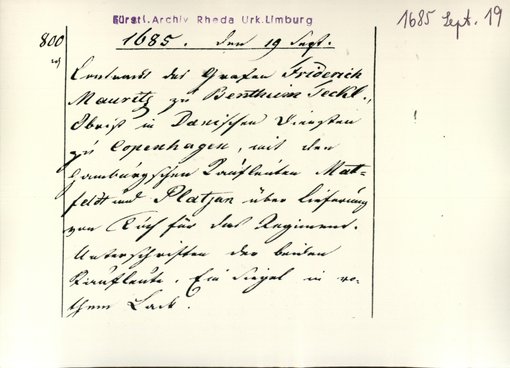 Fürstl. Archiv Rheda Urk. Limburg
1685 Sept. 19
800
1685. den 19 Sept.
Contract des Grafen Friderich
Mauritz zu Bentheim Teckl.,
Obrist in Dänischen Diensten
zu Copenhagen, mit den
Hamburgschen Kaufleuten Mat-
feldt und Platjan über Lieferung
von Tuch für das Regiment.
Unterschriften der beiden
Kaufleute. Ein Siegel in ro-
them Lack.